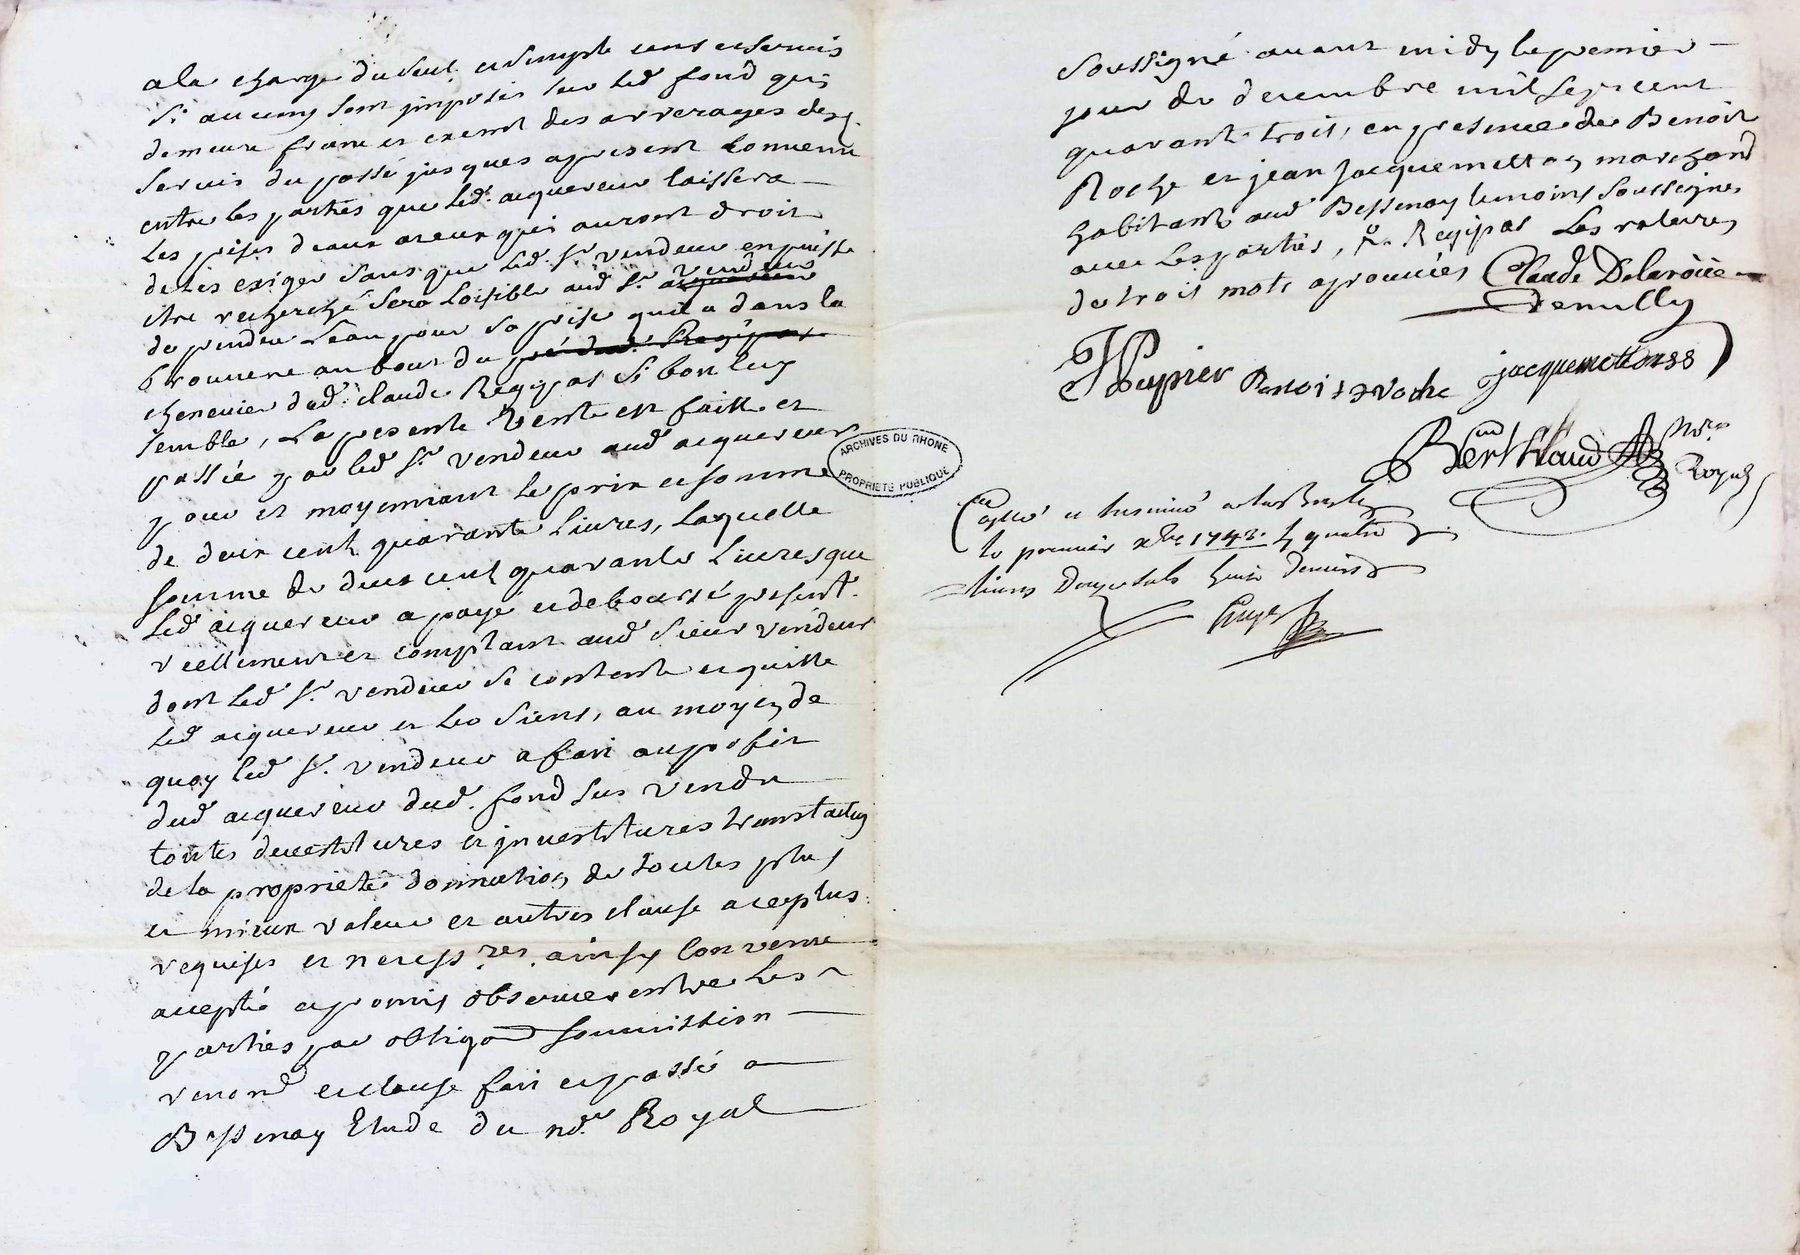 a la charge du seul et simple cens et servis
si aucuns sont jmposés sur led. fond qui
demeure franc et exemt des arrerages desd.
servis du passé jusques apresent convenu
entre les parties que led. acquereur laissera
les prises deaux a ceux qui auront droit
de les exiger sans que led. sr. vendeur en puisse
etre recherché sera loisible aud. sr. acquereur vendeur
de prendre l'eau pour sa prise quil a dans la
au bout du pré dud. Regipas
cheneviere dud. claude Regipas si bon luy
semble, La presente vente est faitte et
passée par led. sr. vendeur aud. acquereur
pour et moyennant le prix et somme
de deux cent quarante Livres, Laquelle
somme de deux cent quarante Livres que
led. acquereur a payé et deboursé presentt.
reellement et comptant aud. sieur vendeur
dont led. sr. vendeur se contente et quitte
led. acquereur et les siens, au moyen de
quoy led. sr. vendeur a fait au profit
dud. acquereur dud. fond sus vendu
toutes devestitures et jnvestitures translation
de la proprieté donnation de toutes plus
et mieux valeur et autres clause a ce plus
requises et necess.res ainsy convenu
accepté et promis observer entre les
parties par obligaon soumission
renond et clause fait et passé a
Bessenay Etude du nore. Royal
soussigné avant midy le premier
jour de decembre mil sept cent
quarante trois, en presence de Benoit
Roche et jean Jacquemetton marchand
habitants aud. Bessenay temoins soussignes
avec les parties, Regipas Les ratures
de trois mots aprouvées Claude Delaroüe
Demilly
Pupier Benoist Roche jacquemetton
Berthaud Nore.
Royal
ARCHIVES DU RHONE
PROPRIETE PUBLIQUE
Collé et Insinué a
le premier xbre 1743. R quatre
livres Douze sols